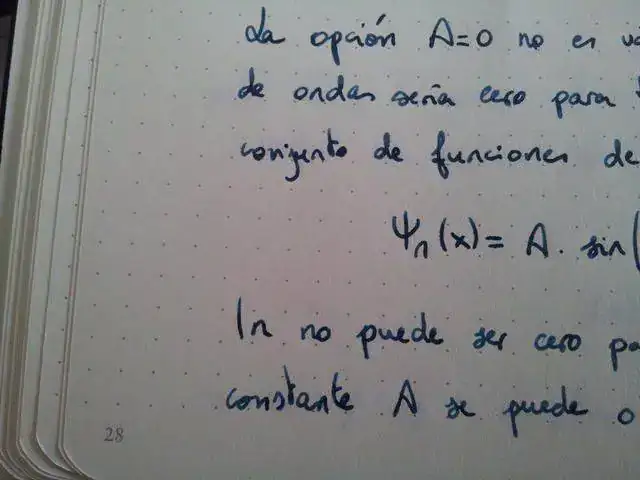 La opción A=0 no es va
de ondas sería cero para t
conjunto de funciones de
Ψn(x) = A. sin(
In no puede ser cero pa
constante A se puede o
28